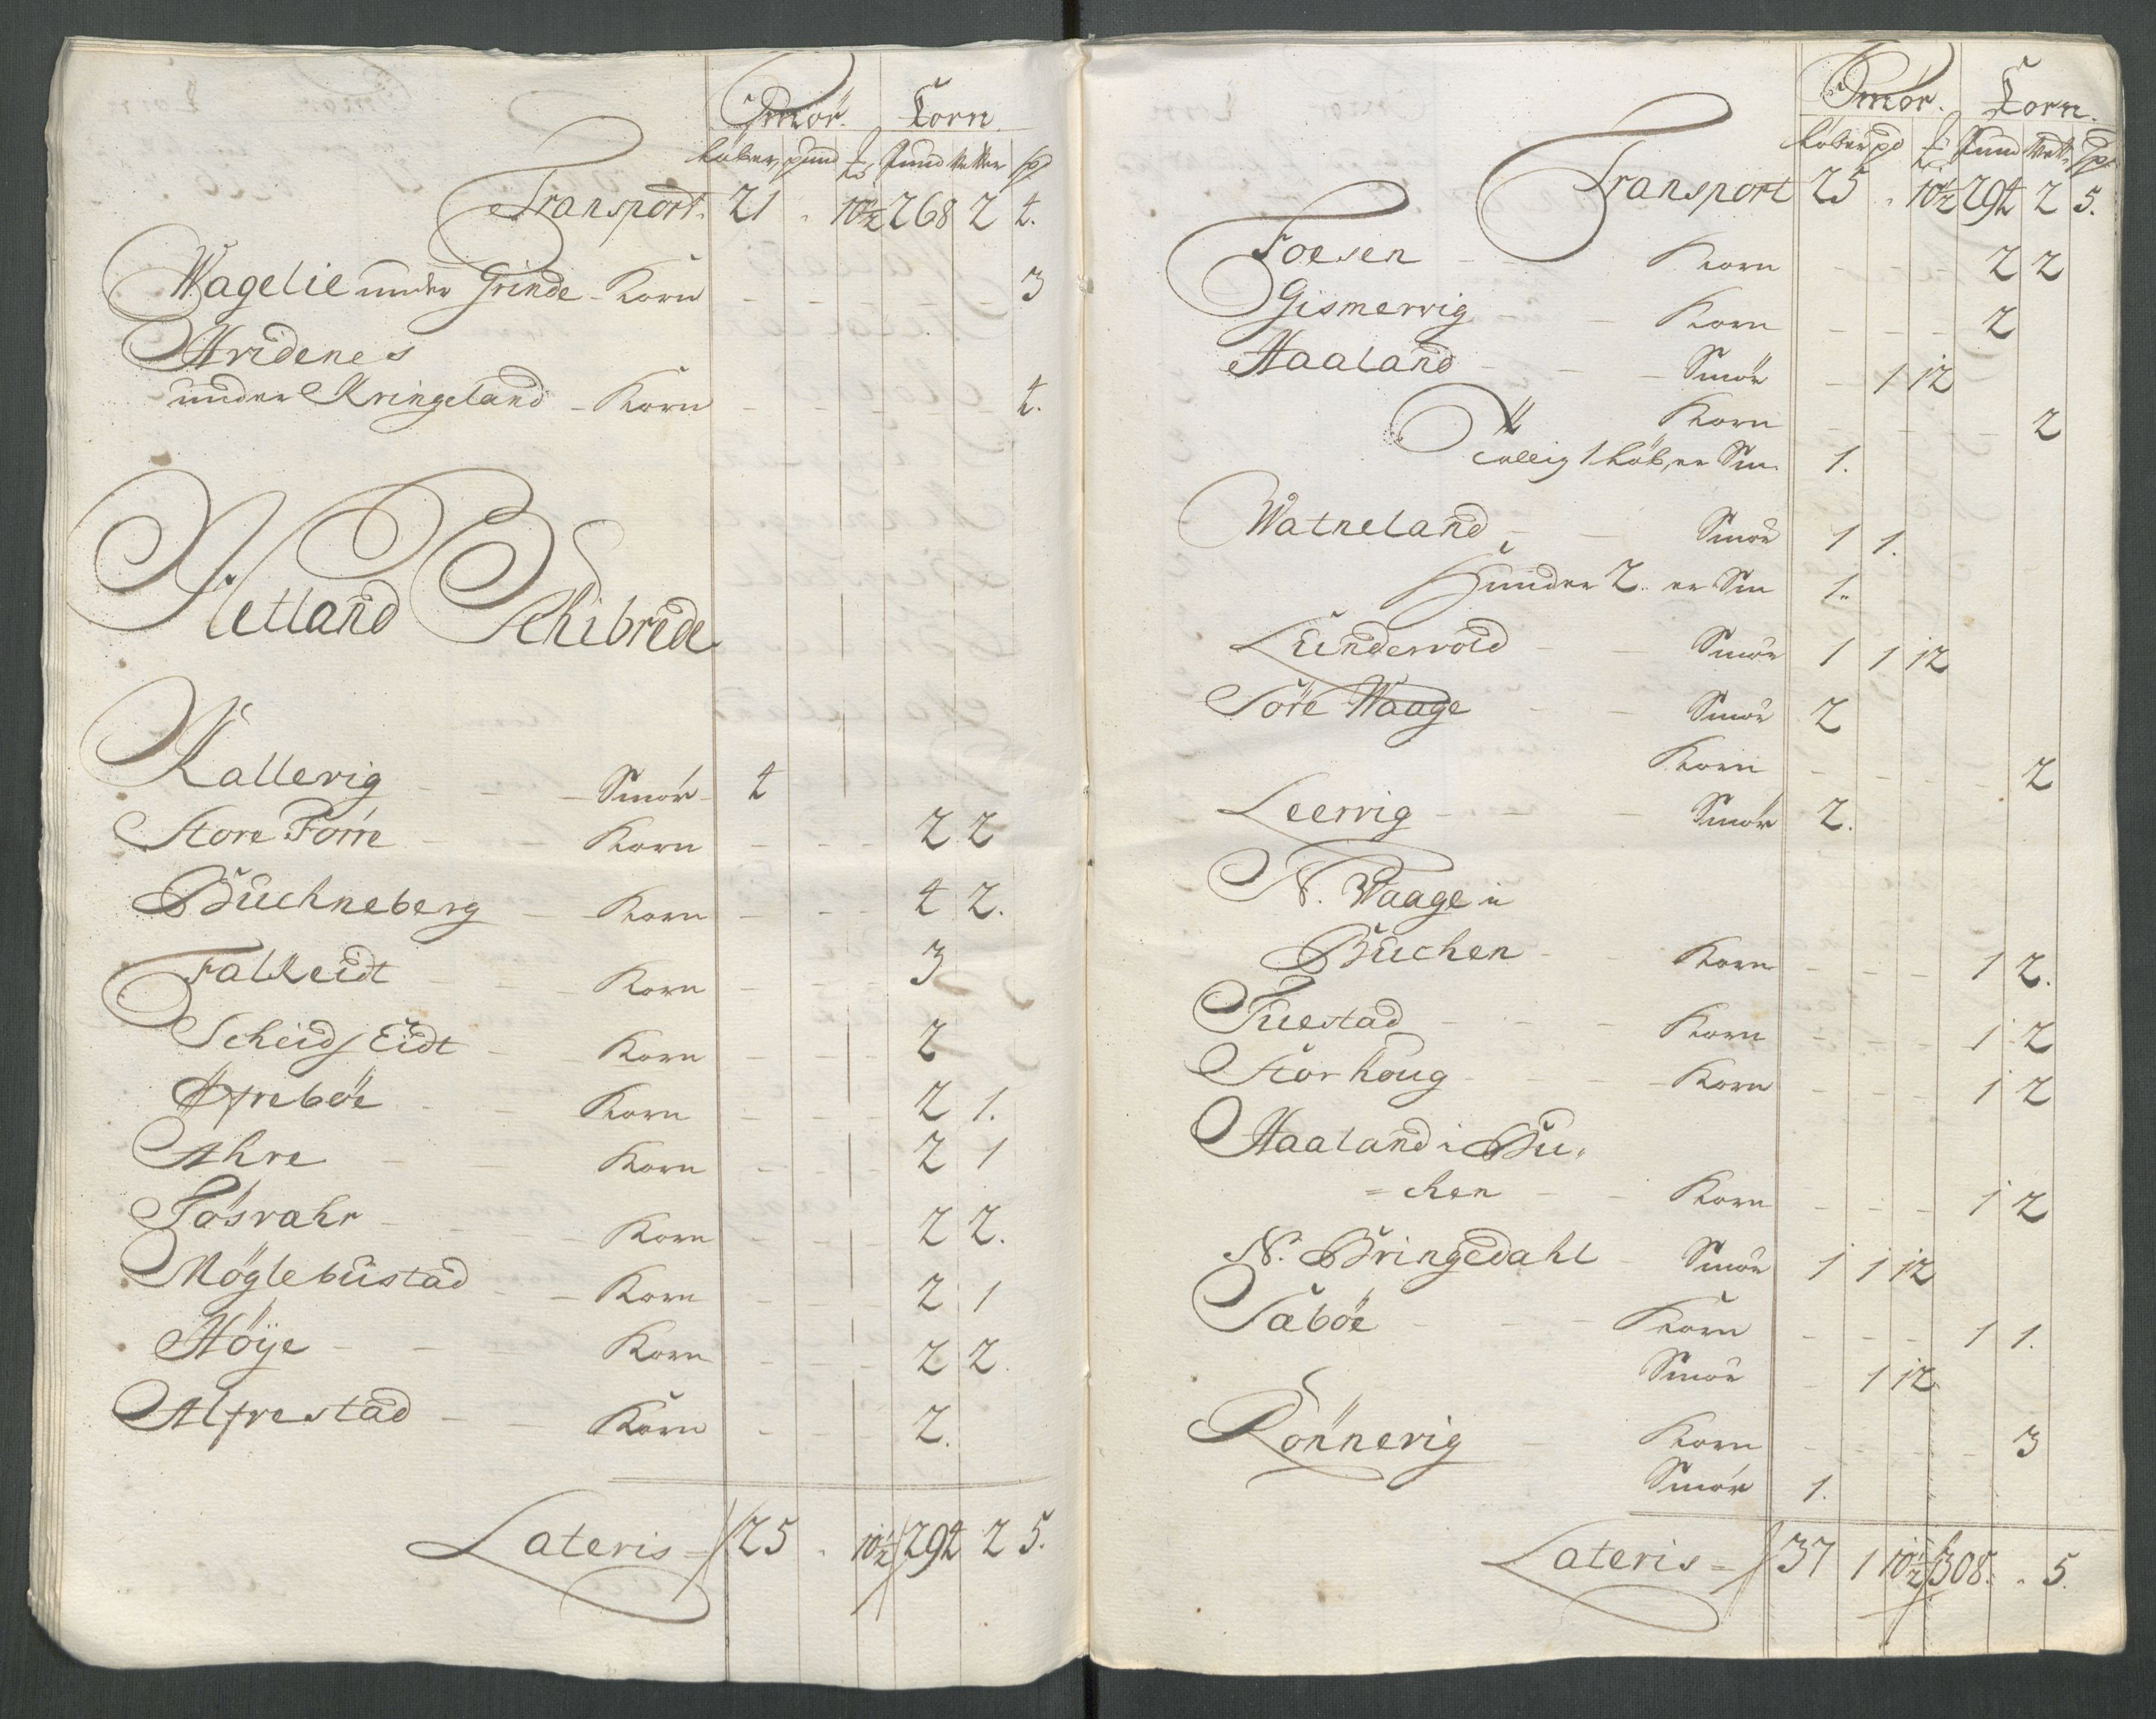 Smör. Korn.
Löber pund ℔ Pund Vetter sp
Transport. 21 - 10½ 268 2 4.
Wagelie under Grinde - Korn - - - - - 3
Hvidenes
under Kringeland - Korn - - - - - 4.
Hetland Schibrede
Kallevig - - - Smör - 4
Store Forre - - Korn - - - 2 2
Buchneberg - - Korn - - - 4 2.
Falkeidt - - - Korn - - - 3
Scheids Eidt - - Korn - - - 2
Öfrebøe - - Korn - - - 2 1.
Ahre - - Korn - - - 2 1
Fösvahr - - - Korn - - - 2 2.
Möglebustad - - Korn - - - 2 1
Höÿe - - Korn - - - 2 2.
Alfrestad - - Korn - - - 2.
Lateris = 25 - 10½ 294 2 5.
Smör. Korn.
Löber pd ℔ Pund Vett. Sp
Transport 25 - 10½ 294 2 5.
Foesen - - Korn - - - 2 2
Gismervig - Korn - - - 2
Haaland - - - Smör - 1 12
" Korn - - - - 2
1 Löb, er Sm. 1.
Watneland - - Smör 1 1.
er Sm 1.
Lundervold - - Smör 1 1 12
Söre Waage - - Smör 2
Korn - - - - 2
Leervig - - - Smör 2.
N. Waage i
Buchen - - Korn - - - 1 2.
Tuestad - - - Korn - - - 1 2
Storhoug - - - Korn - - - 1 2
Haaland i Bu,
= chen - - Korn - - - 1 2
N. Bringedahl - Smör 1 1 12
Sæbøe - - - Korn - - - 1 1.
Smör - 1 12
Rönnevig - Korn - - - - 3
Smör 1.
Lateris = 37 1 10½ 308. - 5.